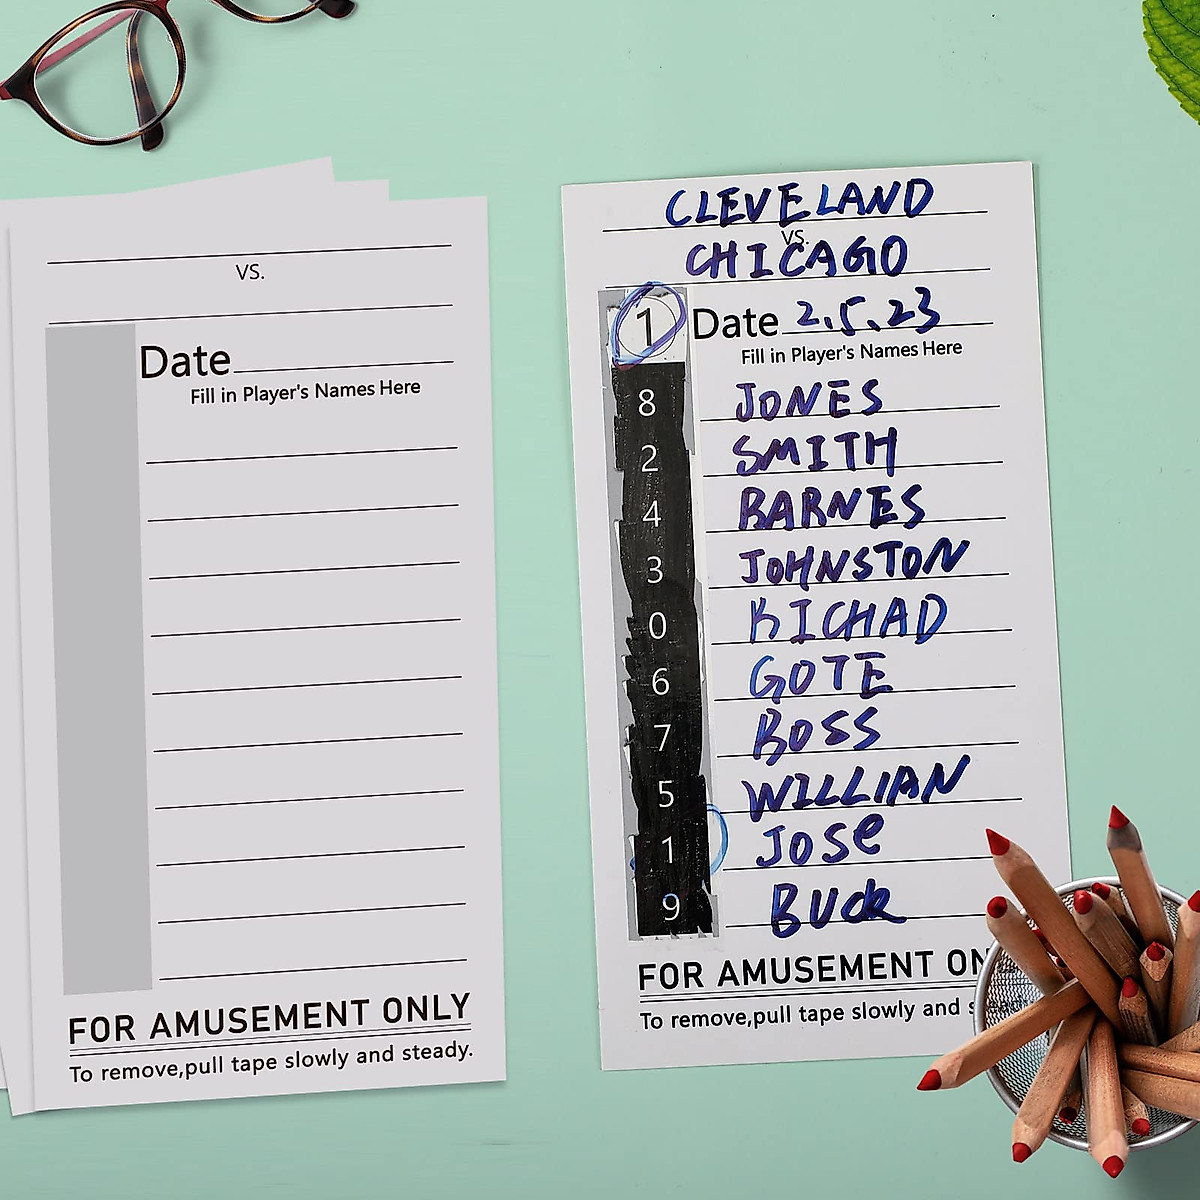 VS.
Date
Fill in Player's Names Here
FOR AMUSEMENT ONLY
To remove,pull tape slowly and steady.
CLEVELAND
VS.
CHICAGO
1 Date 2.5.23
Fill in Player's Names Here
8 JONES
2 SMITH
4 BARNES
3 JOHNSTON
0 KICHAD
6 GOTE
7 BOSS
5 WILLIAN
1 JOSe
9 BUck
FOR AMUSEMENT ON
To remove,pull tape slowly and s